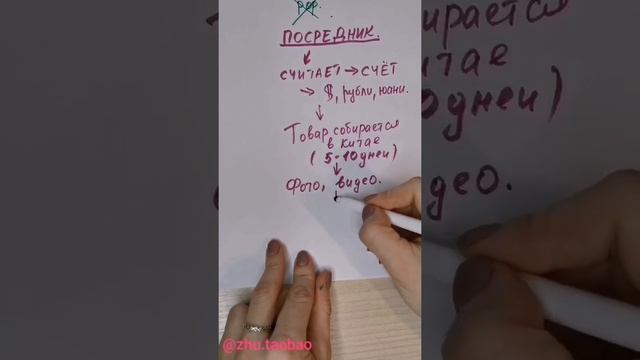 ПОСРЕДНИК.
СЧИТАЕТ → СЧЁТ
→ $, рубли, юани.
Товар собирается
в Китае
(5-10 дней)
Фото, видео.
@zhu.taobao